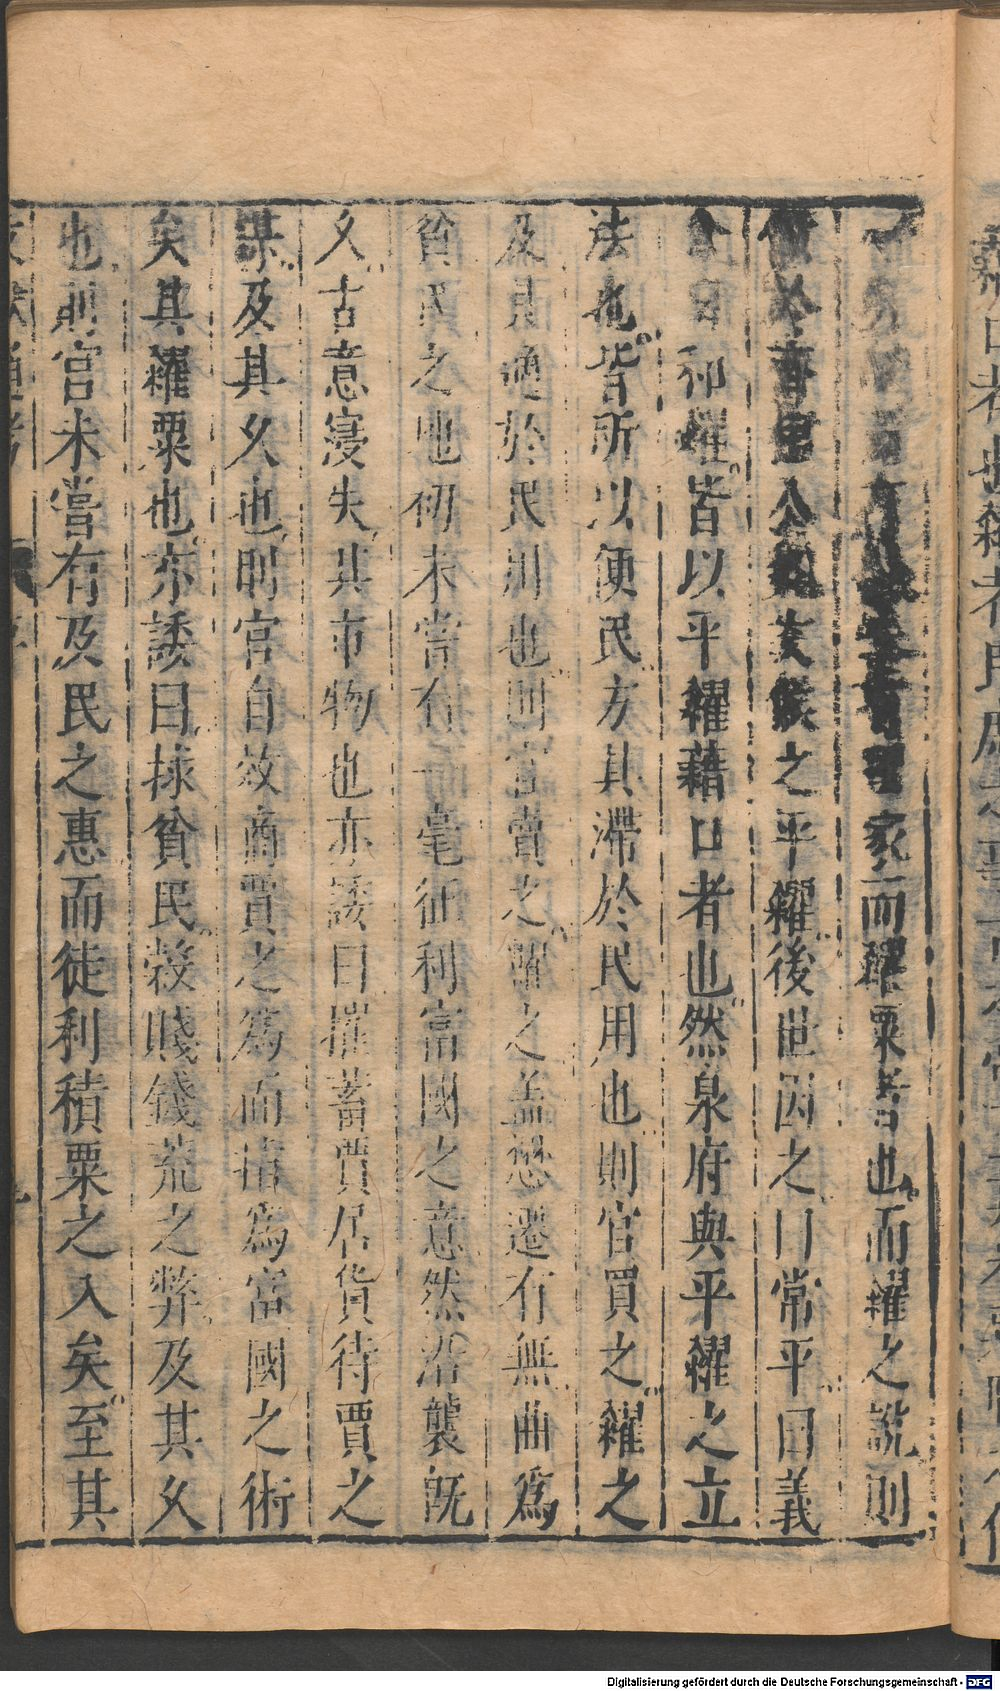 家而糴粟者也而糴之說則
於齊桓公魏文侯之平糴後世因之曰常平曰義
倉曰和糴皆以平糴藉口者也然泉府與平糴之立
法也皆所以便民方其滯於民用也則官買之糴之
及其適於民用也則官賣之糶之盖懋遷有無曲爲
貧民之地初未嘗有一毫征利富國之意然沿襲旣
久古意寖失其市物也亦諉曰榷蓄賈居貨待賈之
謀及其久也則官自效商賈之爲而指爲富國之術
矣其糴粟也亦諉曰捄貧民榖賤錢荒之弊及其久
也則官未嘗有及民之惠而徒利積粟之入矣至其
Digitalisierung gefördert durch die Deutsche Forschungsgemeinschaft - DFG